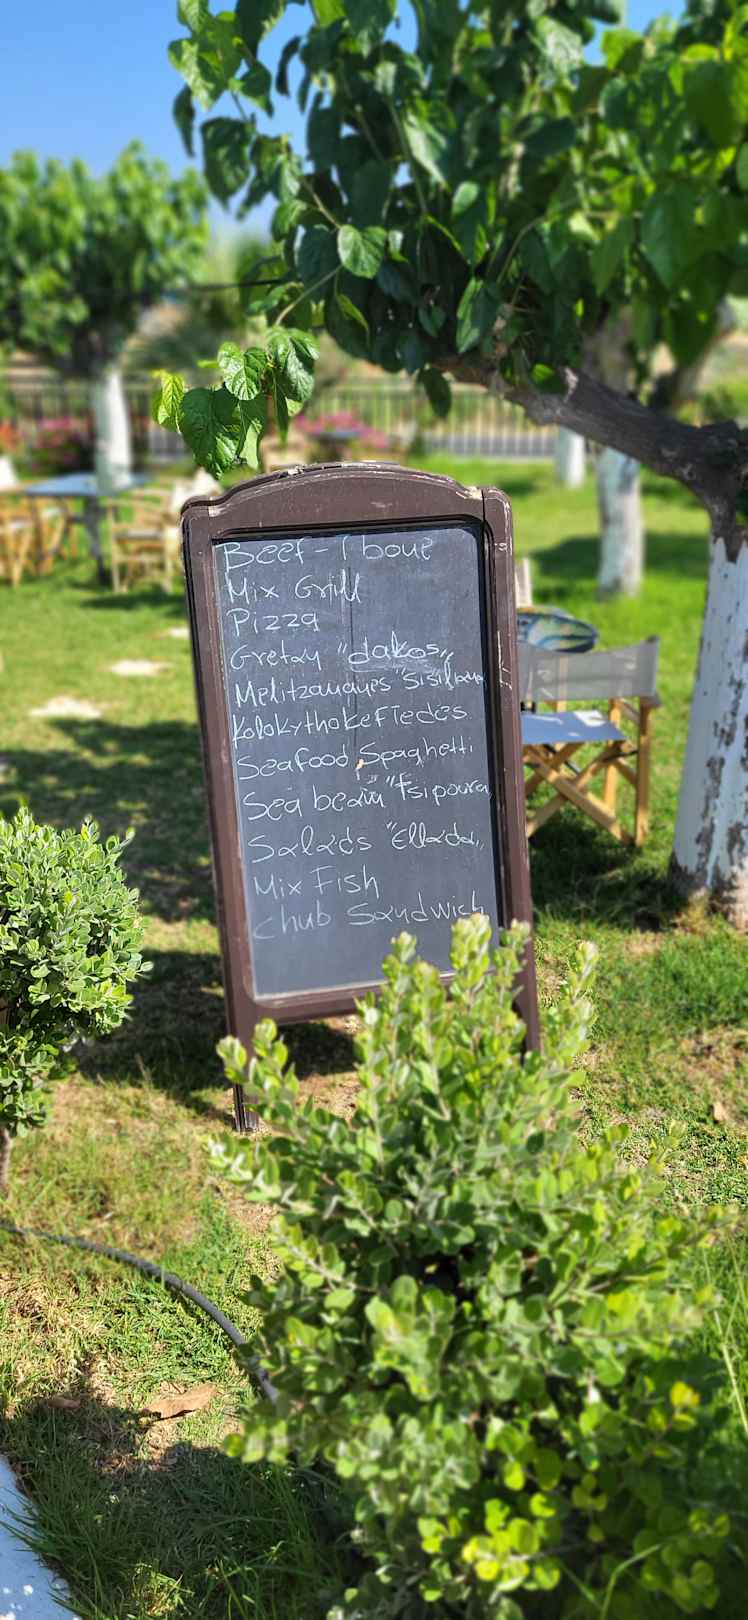 Beef - T bone
Mix Grill
Pizza
Cretan "dakos„
Melitzananes
Kolokythokeftedes
Seafood Spaghetti
Sea beam "tsipoura
Salads "Ellada„
Mix Fish
Chub Sandwich